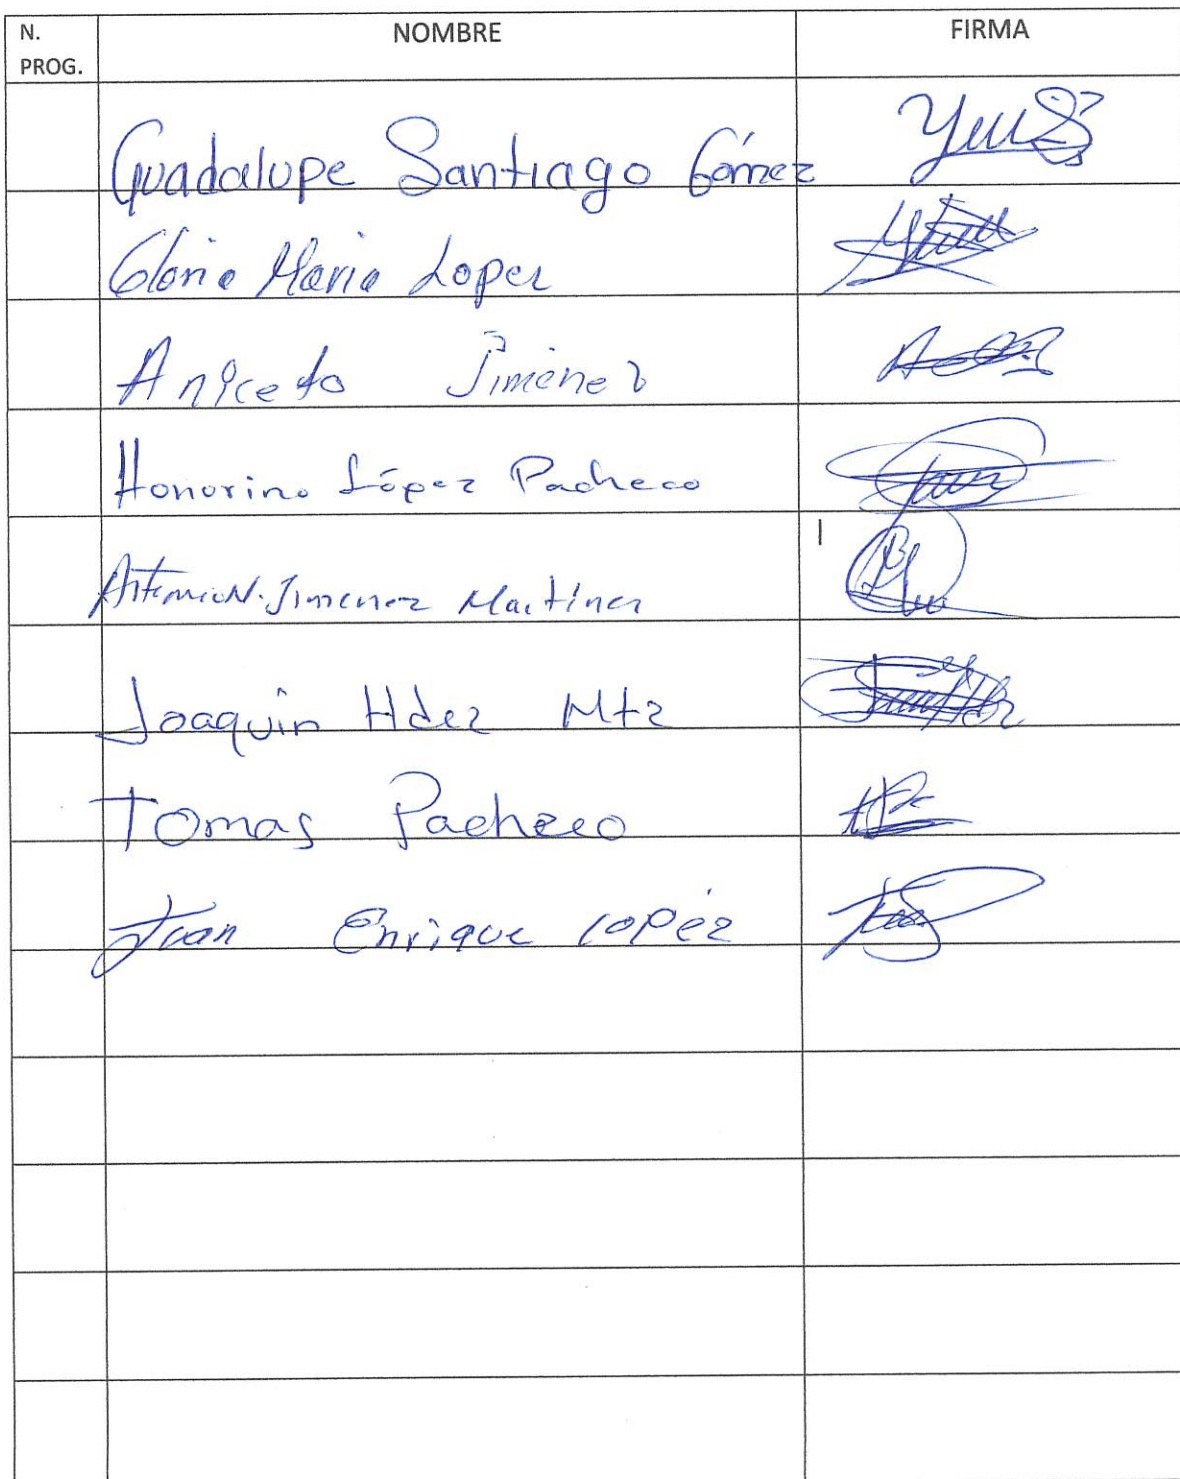 N. PROG. NOMBRE FIRMA
Guadalupe Santiago Gómez
Gloria Maria Lopez
Aniceto Jimenez
Honorino López Pacheco
Artemio N. Jimenez Martinez
Joaquin Hdez Mtz
Tomas Pacheco
Juan Enrique Lopéz